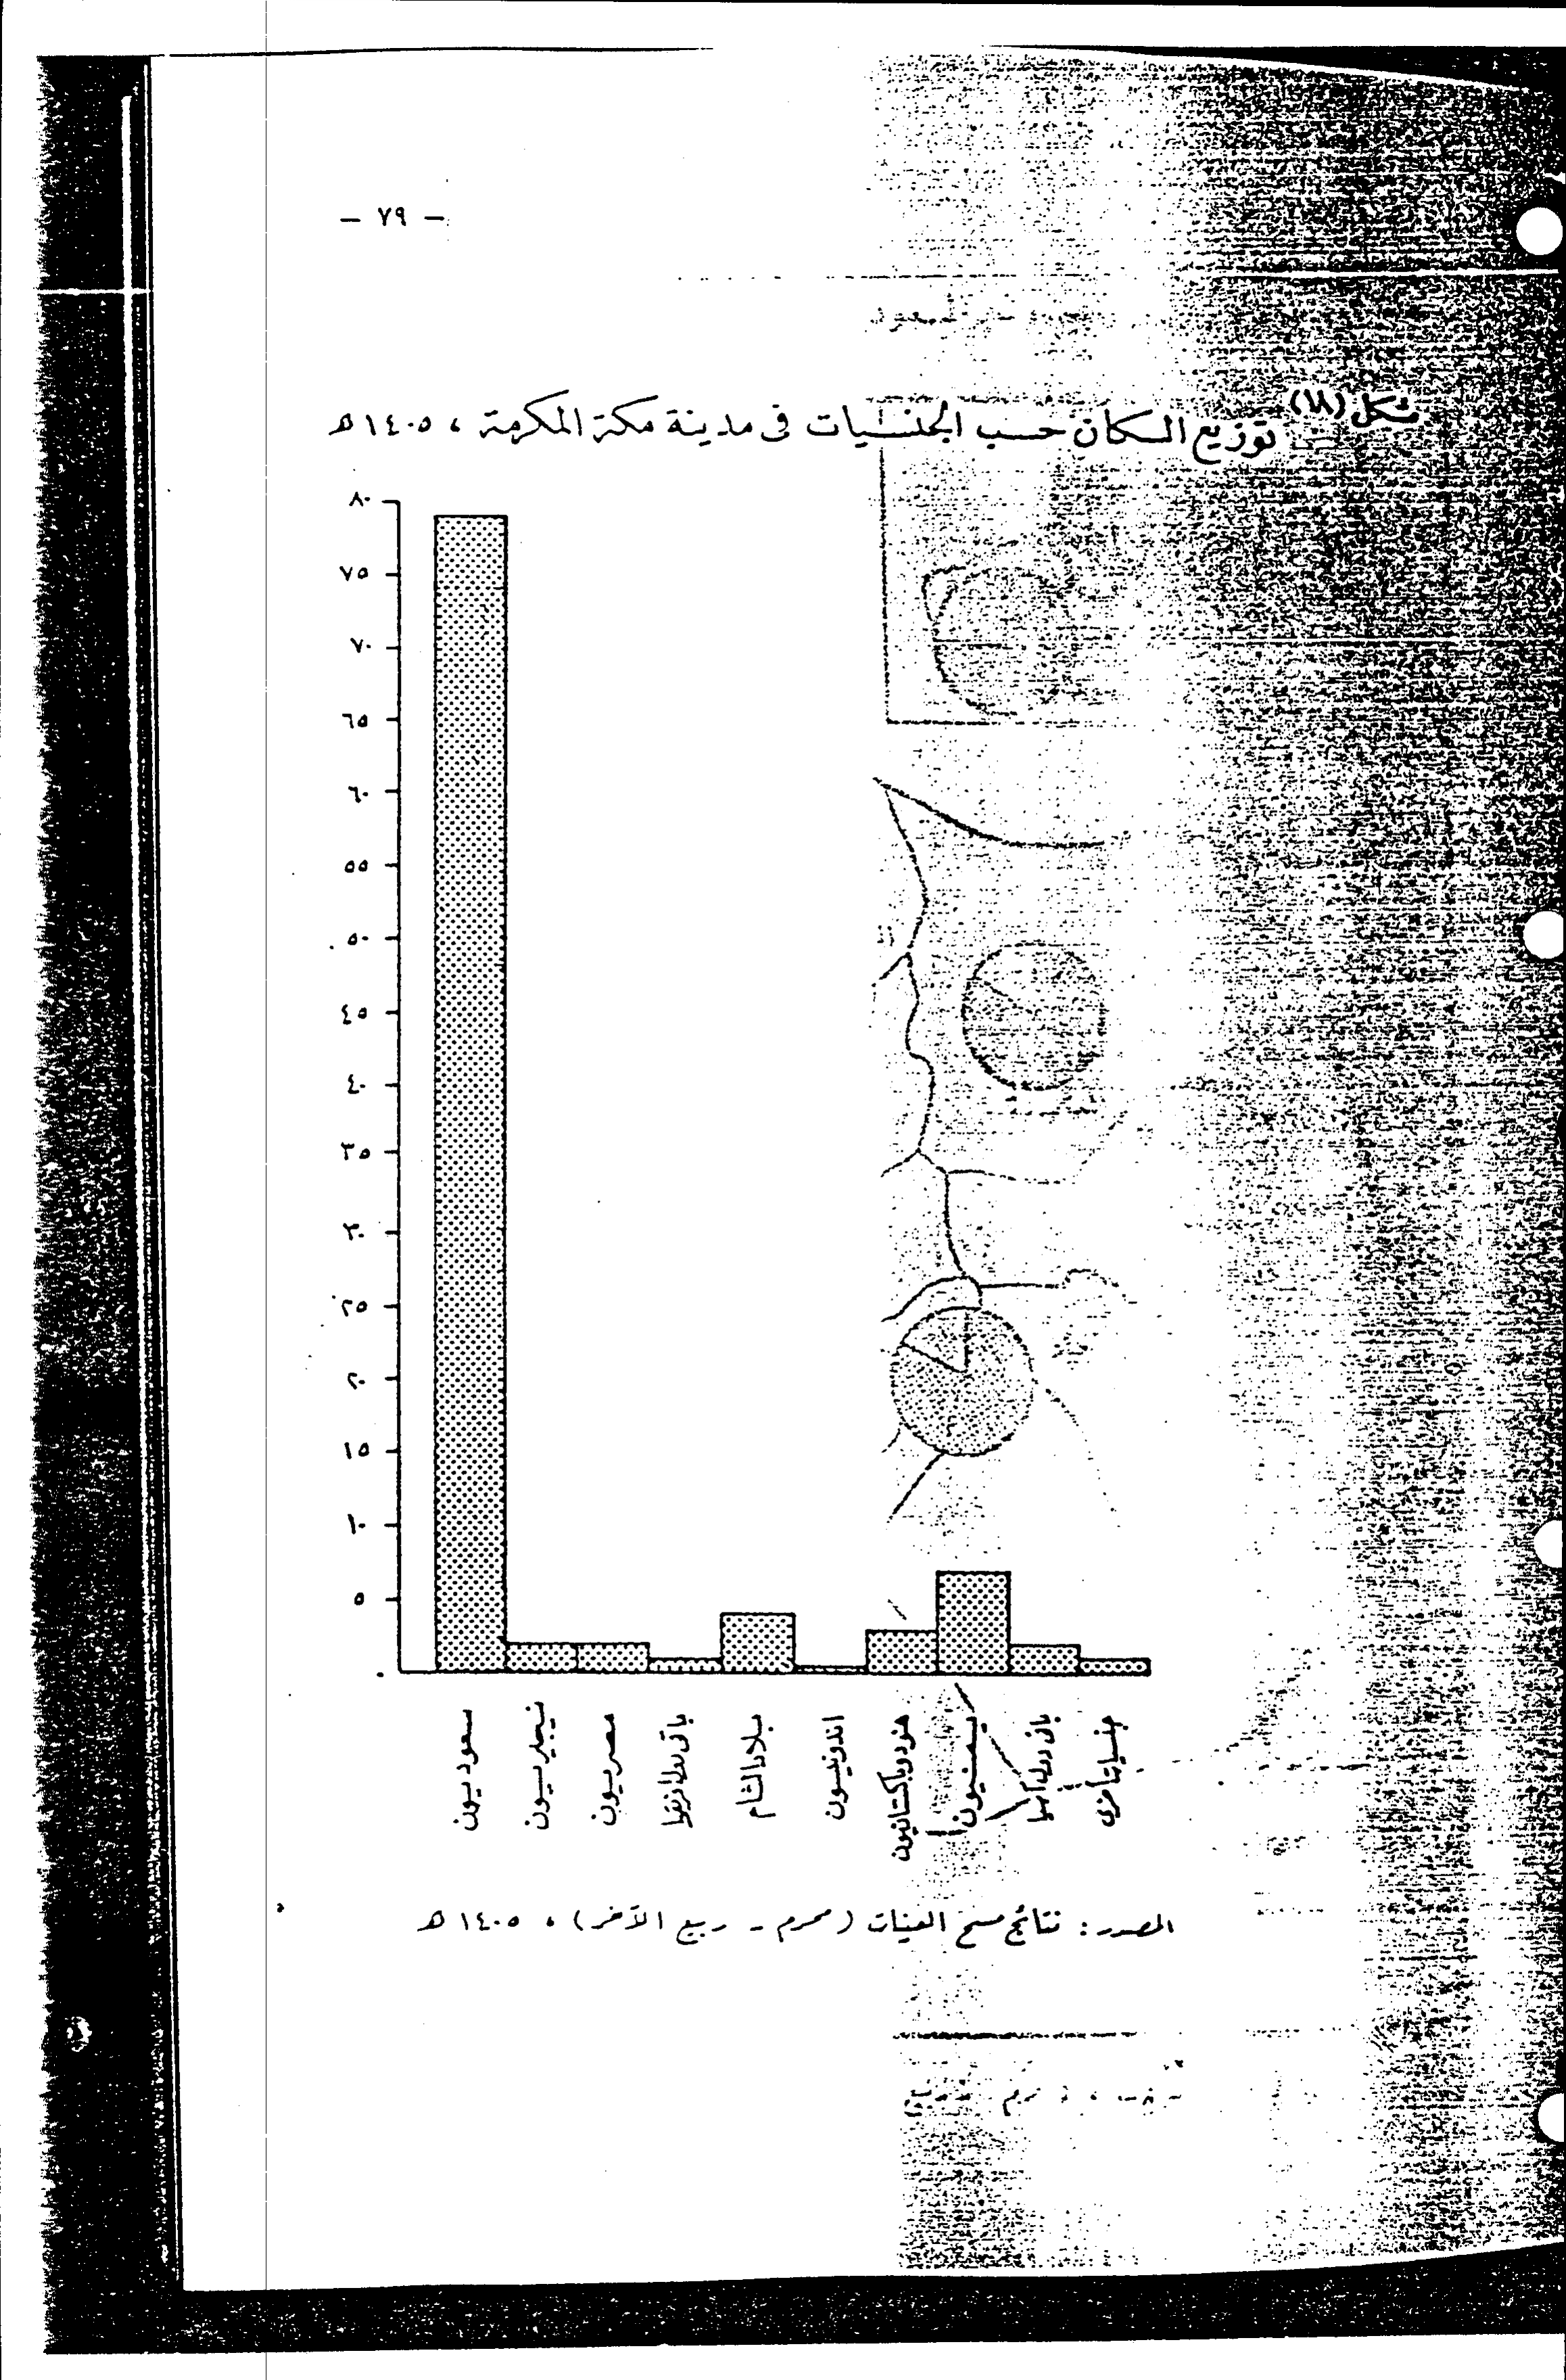 - ٧٩ -
شكل (١٨) توزيع السكان حسب الجنسيات فى مدينة مكة المكرمة ، ١٤٠٥ هـ
٨٠
٧٥
٧٠
٦٥
٦٠
٥٥
٥٠
٤٥
٤٠
٣٥
٣٠
٢٥
٢٠
١٥
١٠
٥
٠
سعوديون
نيجيريون
مصريون
باقى دول افريقيا
بلاد الشام
اندونيسيون
هنود وباكستانيون
يمنيون
باقى دول آسيا
جنسيات أخرى
المصدر : نتائج مسح العينات (محرم - ربيع الآخر) ، ١٤٠٥ هـ